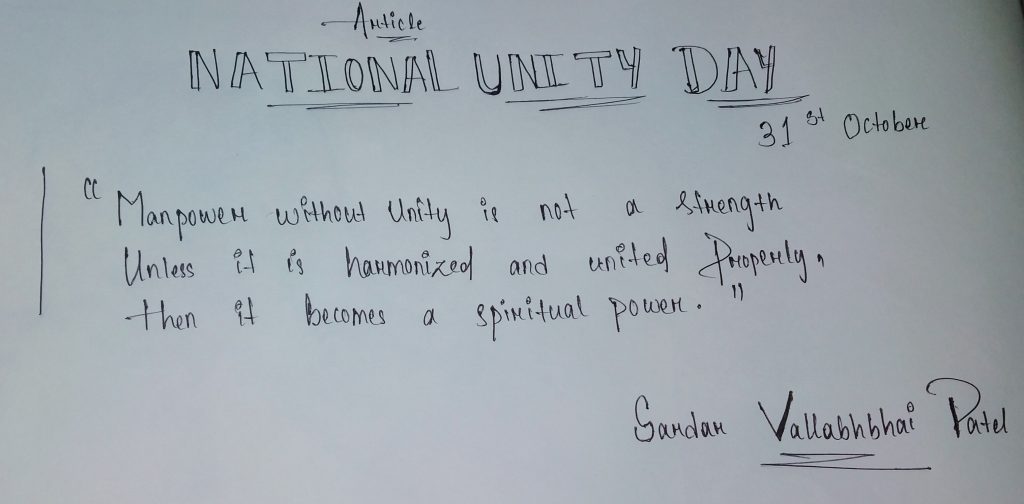 Article
NATIONAL UNITY DAY
31st October
"Manpower without Unity is not a strength
Unless it is harmonized and united Properly,
then it becomes a spiritual power."
Sardar Vallabhbhai Patel